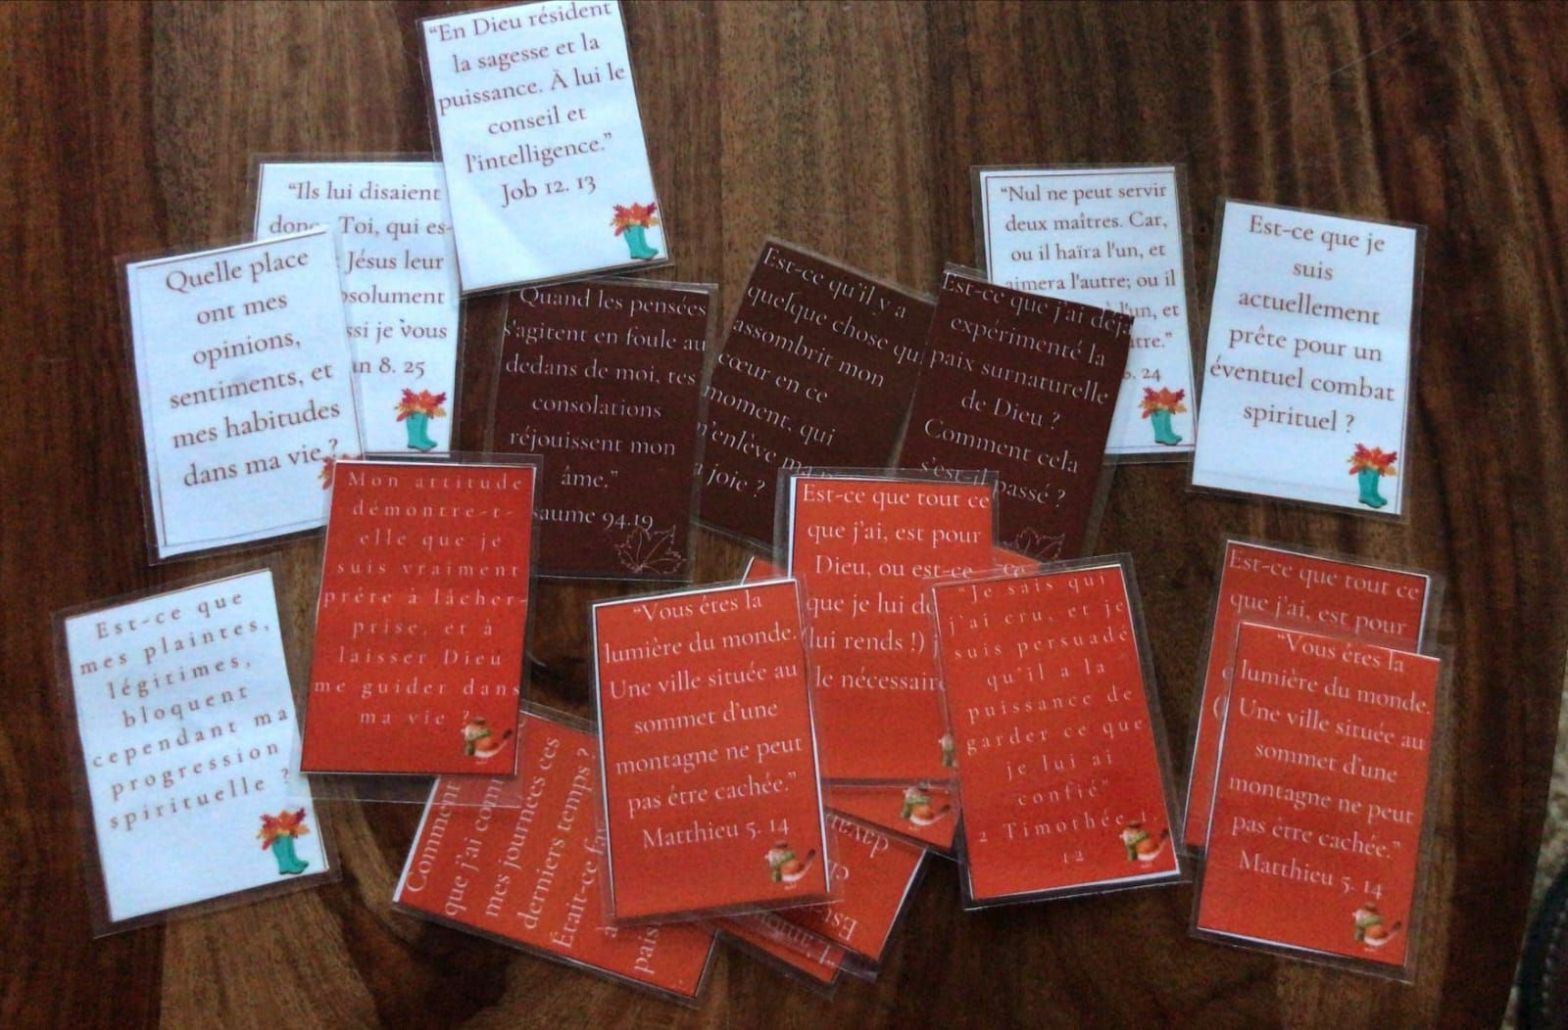 “En Dieu résident
la sagesse et la
puissance. À lui le
conseil et
l'intelligence.”
Job 12. 13
“Ils lui disaient
Toi, qui es-
Jésus leur
je vous
8. 25
Quelle place
ont mes
opinions,
sentiments, et
mes habitudes
dans ma vie ?
Quand les pensées
s'agitent en foule au
dedans de moi, tes
consolations
réjouissent mon
âme.”
94.19
Est-ce qu'il y a
quelque chose qu
assombrit mon
cœur en ce
moment, qui
m'enlève ma
joie ?
Est-ce que j'ai déjà
expérimenté la
paix surnaturelle
de Dieu ?
Comment cela
s'est passé ?
“Nul ne peut servir
deux maîtres. Car,
ou il haïra l'un, et
aimera l'autre; ou il
l'un, et
24
Est-ce que je
suis
actuellement
prête pour un
éventuel combat
spirituel ?
Est-ce que
mes plaintes,
légitimes,
bloquent
cependant ma
progression
spirituelle ?
Mon attitude
démontre-t-
elle que je
suis vraiment
prête à lâcher
prise et à
laisser Dieu
me guider dans
ma vie ?
que j'ai
mes journées ces
derniers temps ?
Était-ce
“Vous êtes la
lumière du monde.
Une ville située au
sommet d'une
montagne ne peut
pas être cachée.”
Matthieu 5. 14
Est-ce que tout ce
que j'ai, est pour
Dieu, ou est-ce
que je lui
lui rends !)
le
“Je sais qui
j'ai cru, et je
suis persuadé
qu'il a la
puissance de
garder ce que
je lui ai
confié”
2 Timothée
1.2
Est-ce que tout ce
que j'ai, est pour
“Vous êtes la
lumière du monde.
Une ville située au
sommet d'une
montagne ne peut
pas être cachée.”
Matthieu 5. 14